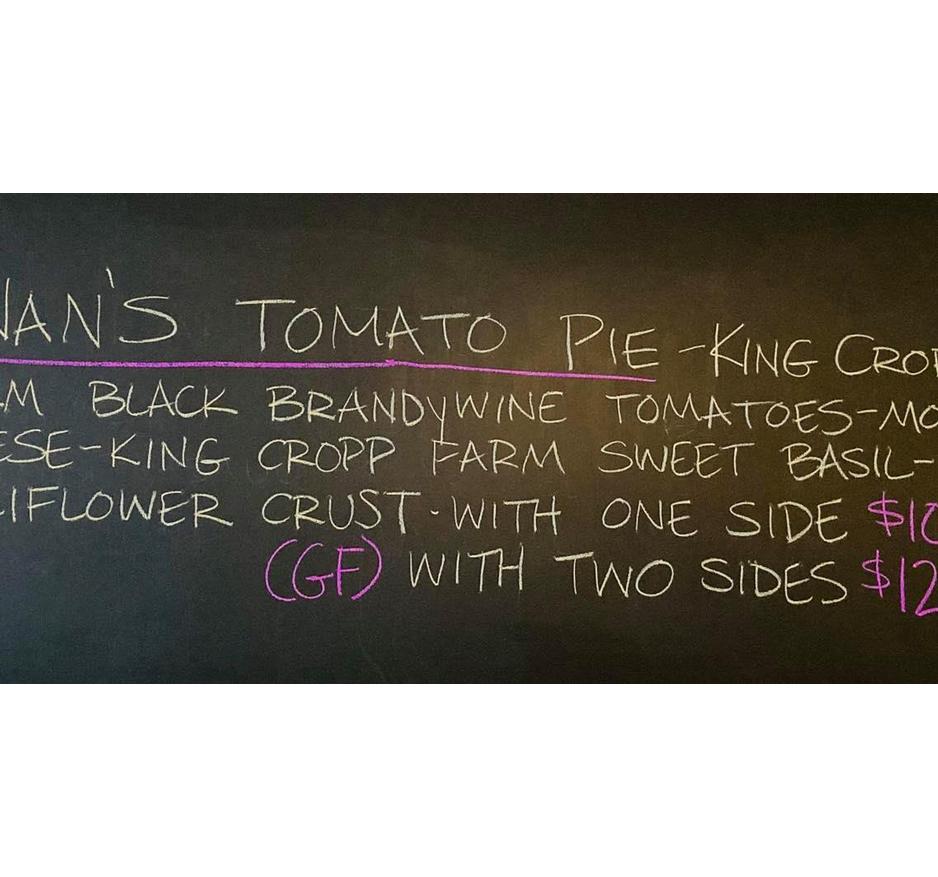 NAN'S TOMATO PIE - KING CROP
M BLACK BRANDYWINE TOMATOES - MO
ESE - KING CROPP FARM SWEET BASIL -
LIFLOWER CRUST - WITH ONE SIDE $10
(GF) WITH TWO SIDES $12